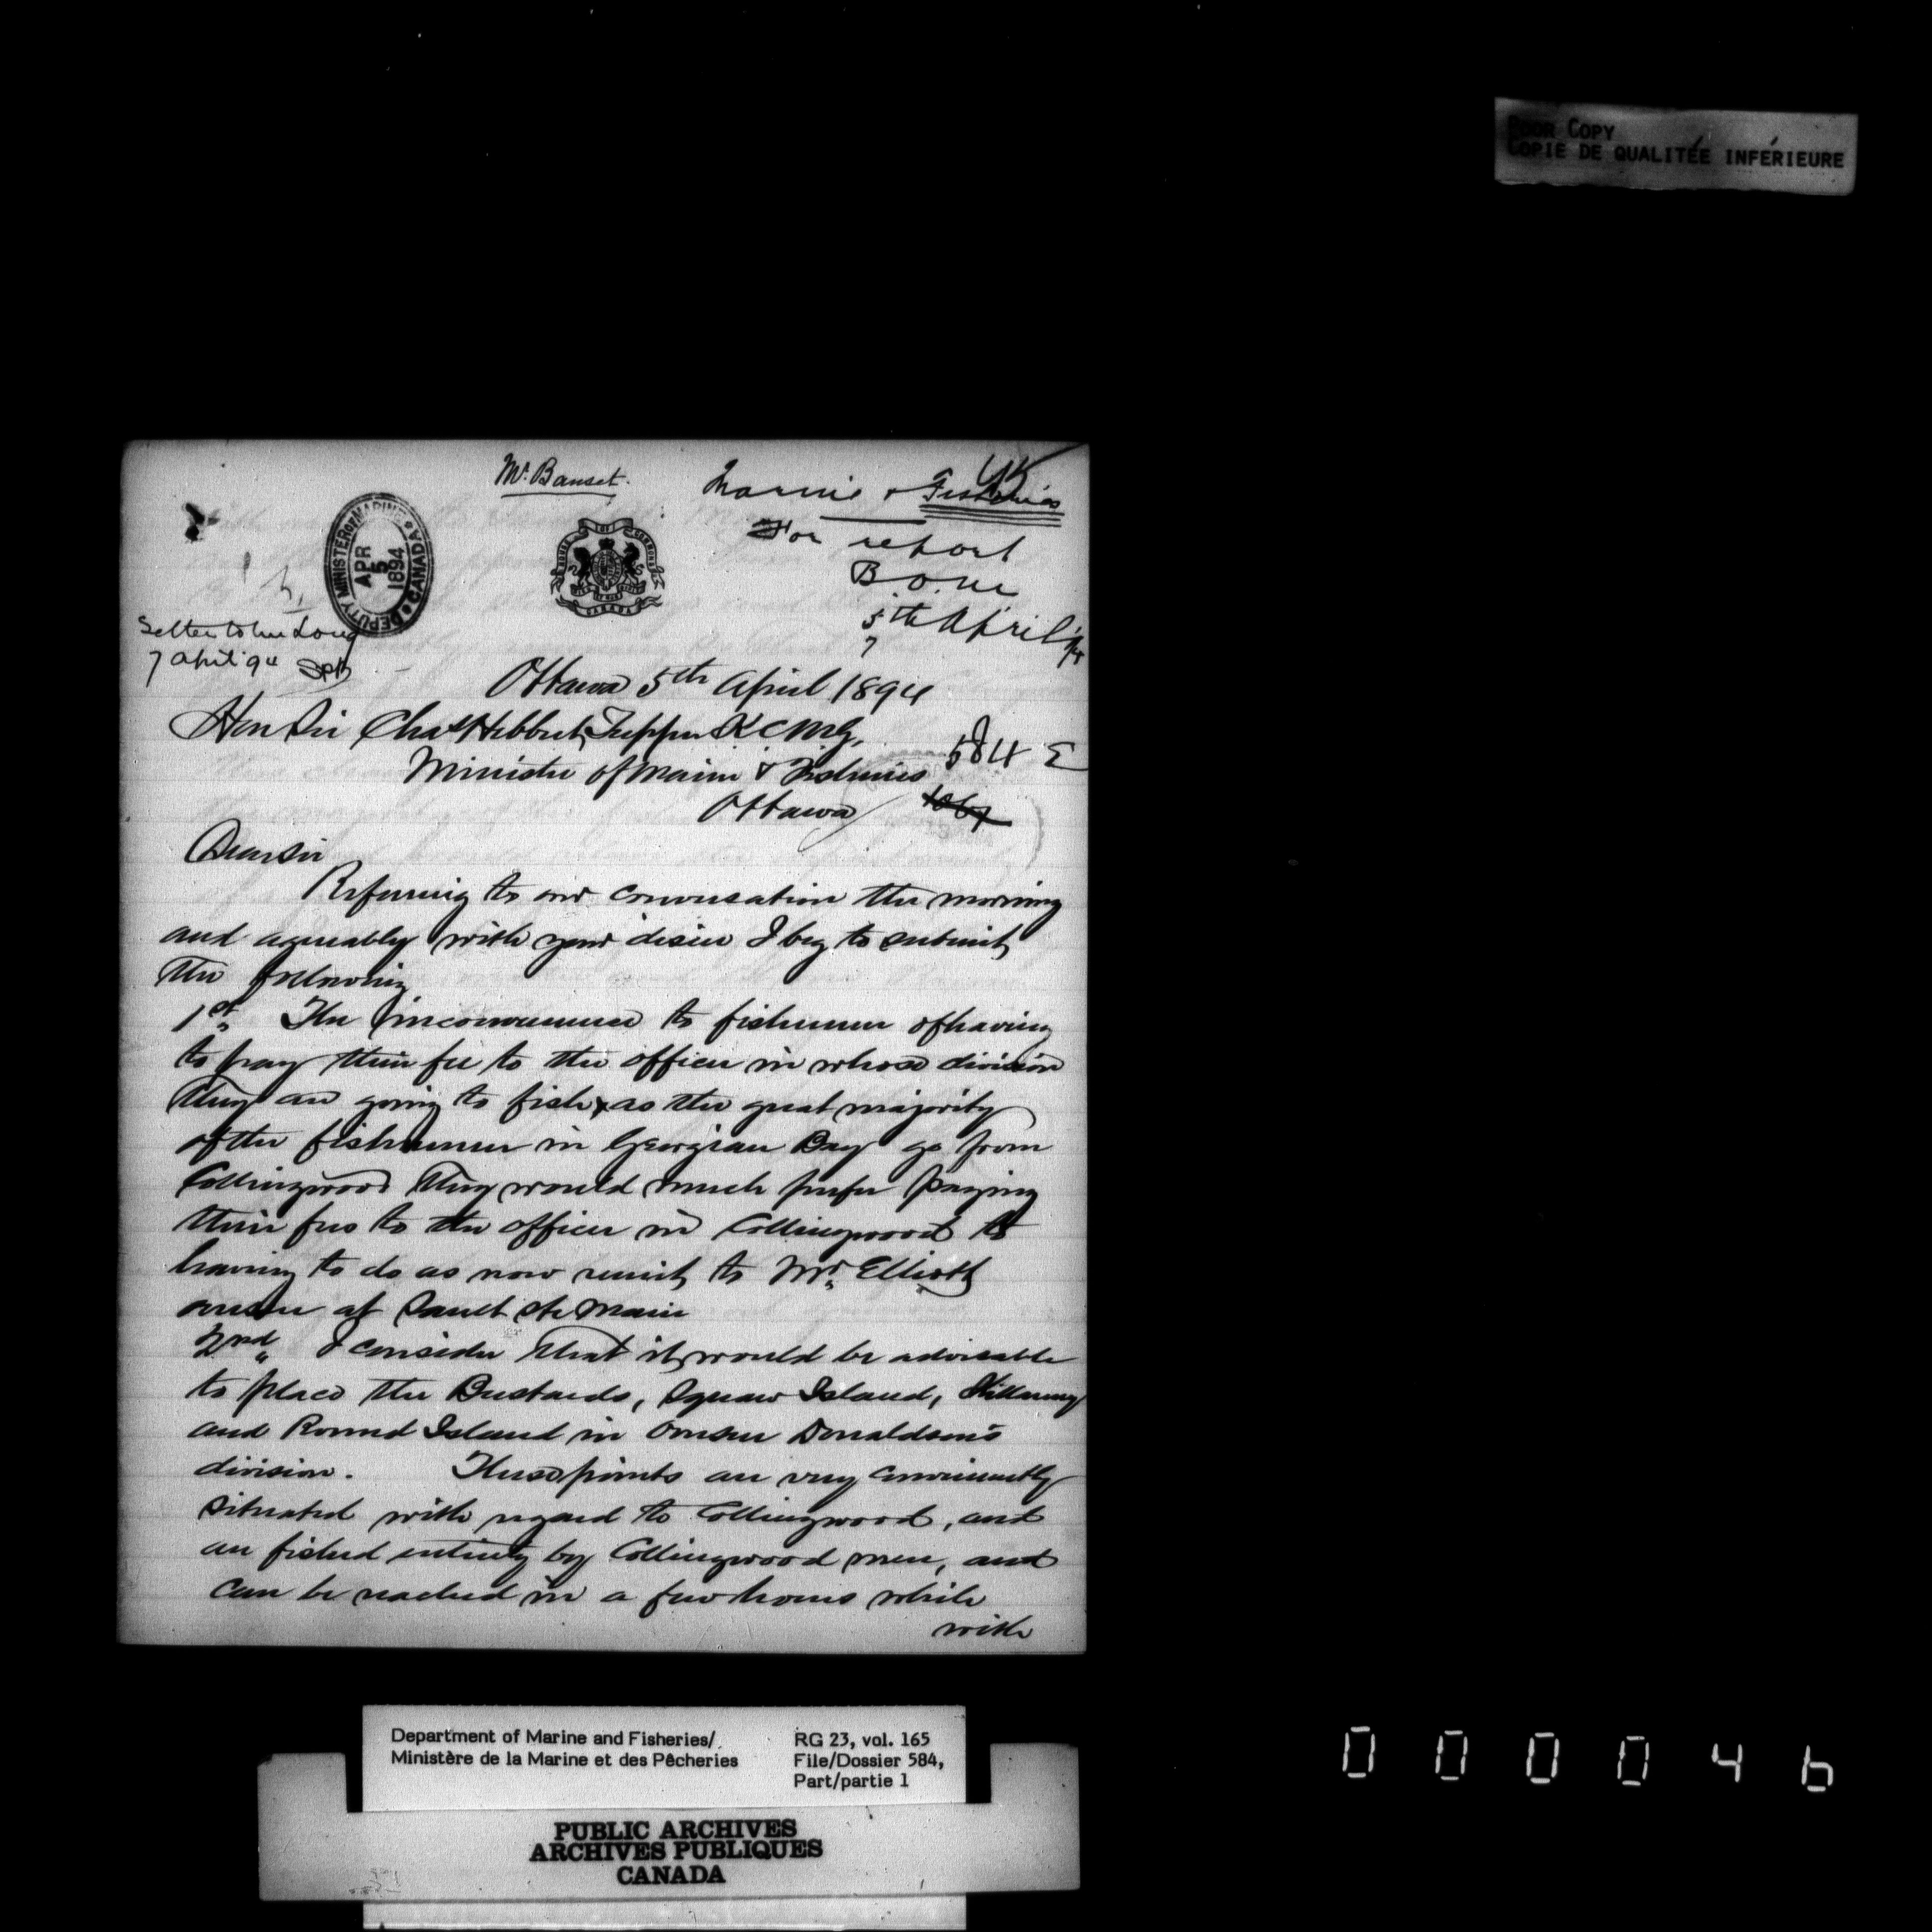 POOR COPY
COPIE DE QUALITÉE INFÉRIEURE
45
Mr. Bauset.
Marine & Fisheries
For report
5th April
DEPUTY MINISTER OF MARINE
APR
5
1894
CANADA
HOUSE OF COMMONS
CANADA
Letter to Mr Long
7 April '94
Ottawa 5th April 1894
Hon Sir Chas Hibbert Tupper KCMG,
Minister of Marine & Fisheries
584
Ottawa
Dear Sir
Referring to our conversation this morning
and agreeably with your desire I beg to submit
the following
1st. The inconvenience to fishermen of having
to pay their fee to the officer in whose division
they are going to fish, as the great majority
of the fishermen in Georgian Bay go from
Collingwood they would much prefer paying
their fees to the officer in Collingwood to
having to do as now remit to Mr. Elliott
overseer at Sault Ste Marie
2nd I consider that it would be advisable
to place the Bustards, Squaw Island, Killarney
and Round Island in Overseer Donaldson's
division. These points are very conveniently
situated with regard to Collingwood, and
are fished entirely by Collingwood men, and
can be reached in a few hours while
with
Department of Marine and Fisheries/
Ministère de la Marine et des Pêcheries
RG 23, vol. 165
File/Dossier 584,
Part/partie 1
PUBLIC ARCHIVES
ARCHIVES PUBLIQUES
CANADA
000046